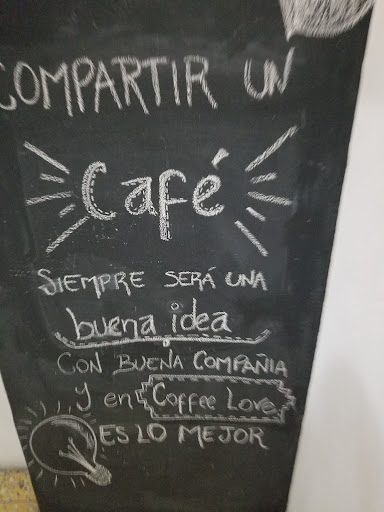 COMPARTIR UN
Café
SIEMPRE SERÁ UNA
buena idea
CON BUENA COMPAÑIA
y en Coffee Love
ES LO MEJOR